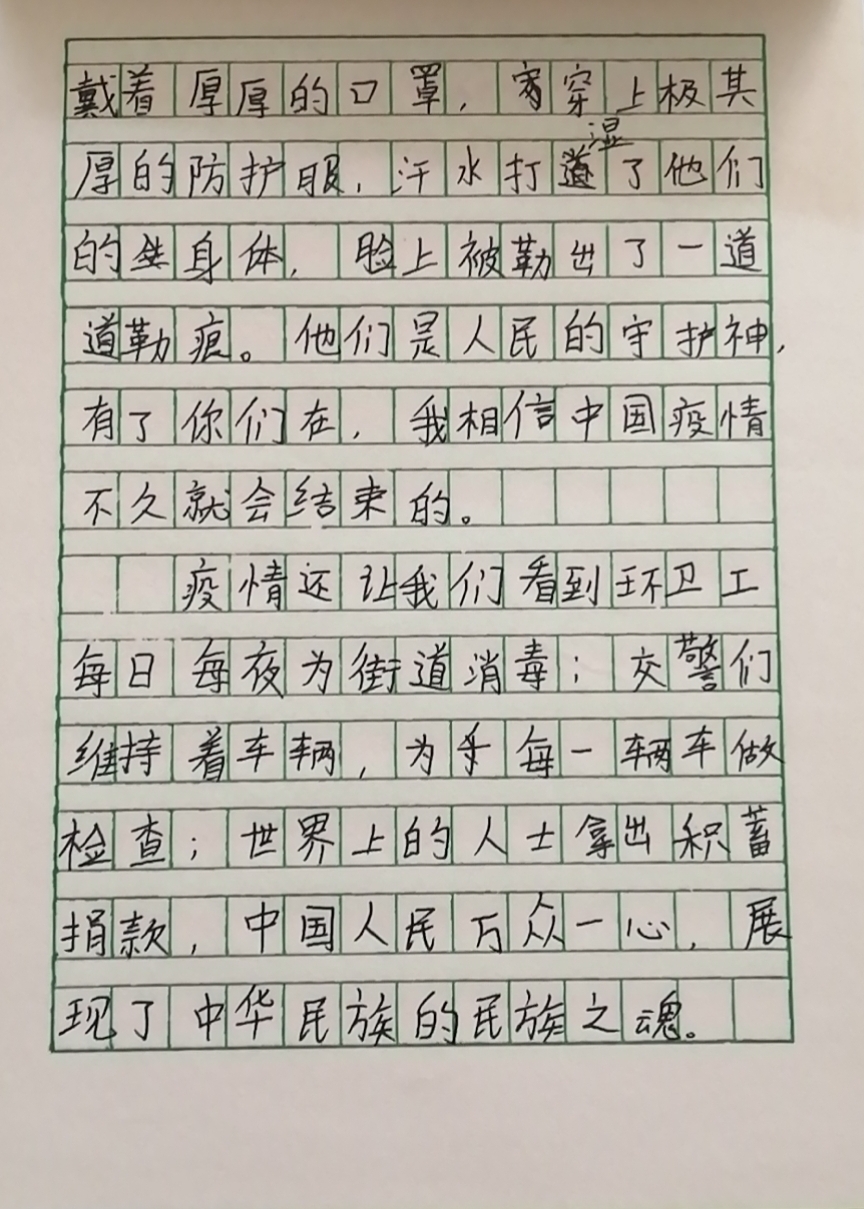 戴着厚厚的口罩，穿上极其
厚的防护服，汗水打湿了他们
的身体，脸上被勒出了一道
道勒痕。他们是人民的守护神，
有了你们在，我相信中国疫情
不久就会结束的。
疫情还让我们看到环卫工
每日每夜为街道消毒；交警们
维持着车辆，为每一辆车做
检查；世界上的人士拿出积蓄
捐款，中国人民万众一心，展
现了中华民族的民族之魂。